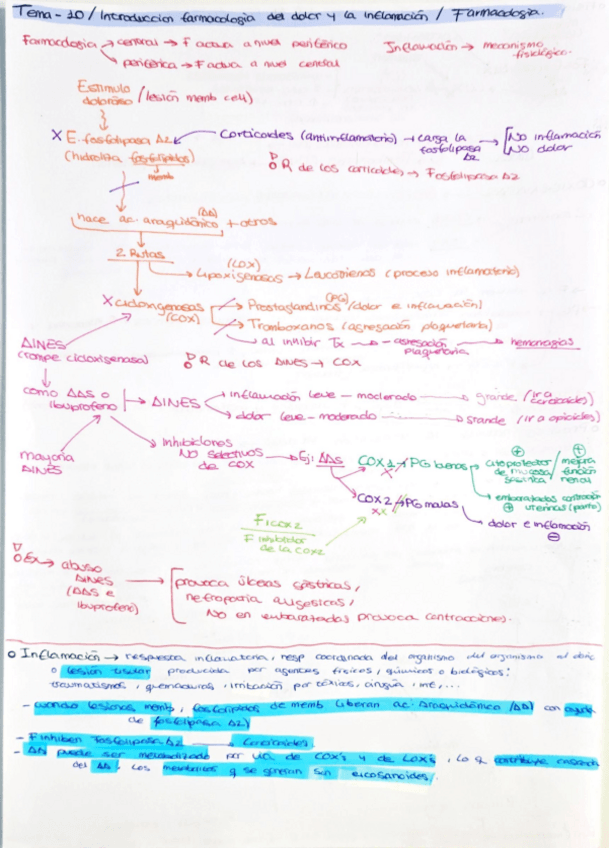 Tema - 10 / Introduccion farmacologia del dolor y la inflamación / Farmacologia.
Farmacologia → central → F actua a nivel periférico
→ periférica → F actua a nivel central
Inflamación → mecanismo fisiológico.
Estimulo doloroso / (lesión memb cell)
X E. fosfolipasa A2 ← Corticoides (antiinflamatorio) → carga la fosfolipasa A2 → NO inflamación
NO dolor
(hidroliza fosfolípidos)
memb
R de los corticoides → Fosfolipasa A2
hace ac. araquidónico (AA) + otros
2 Rutas
(LOX)
Lipoxigenasas → Leucotrienos (proceso inflamatorio)
X ciclooxigenasas (COX) → Prostaglandinas (PG) / dolor e inflamación)
→ Tromboxanos (agregación plaquetaria)
→ al inhibir Tx → - agregación plaquetaria → hemorragias
AINES
(rompe ciclooxigenasa)
R de los AINES → COX
como AAS o Ibuprofeno → AINES → inflamación leve - moderado → grande / (ir a corticoides)
→ dolor leve - moderado → grande / (ir a opioides)
mayoria AINES
→ Inhibiciones NO selectivos de COX → Ej: AAS
COX 1 → PG buenas → citoprotector de mucosa gástrica / mejora función renal
→ embarazadas contracción uterinas (parto)
COX 2 → PG malas
→ dolor e inflamación
F icox 2
F inhibidor de la COX2
Ex → abuso AINES (AAS e Ibuprofeno) → provoca úlceras gástricas,
nefropatia
NO en embarazadas provoca contracciones.
o Inflamación → respuesta inflamatoria, resp coordinada del organismo
o lesión tisular producida por agentes físicos, químicos o biológicos:
traumatismos, quemaduras, irritación por tóxicos, cirugia, inf,...
- cuando lesionas memb, fosfolípidos de memb liberan ac. Araquidónico (AA) con ayuda
de fosfolipasa A2)
- F inhiben Fosfolipasa A2 → Corticoides.
- AA puede ser metabolizado por via de COX's y de LOX's, lo q contribuye cascada
del AA. Los metabolitos q se generan son eicosanoides.